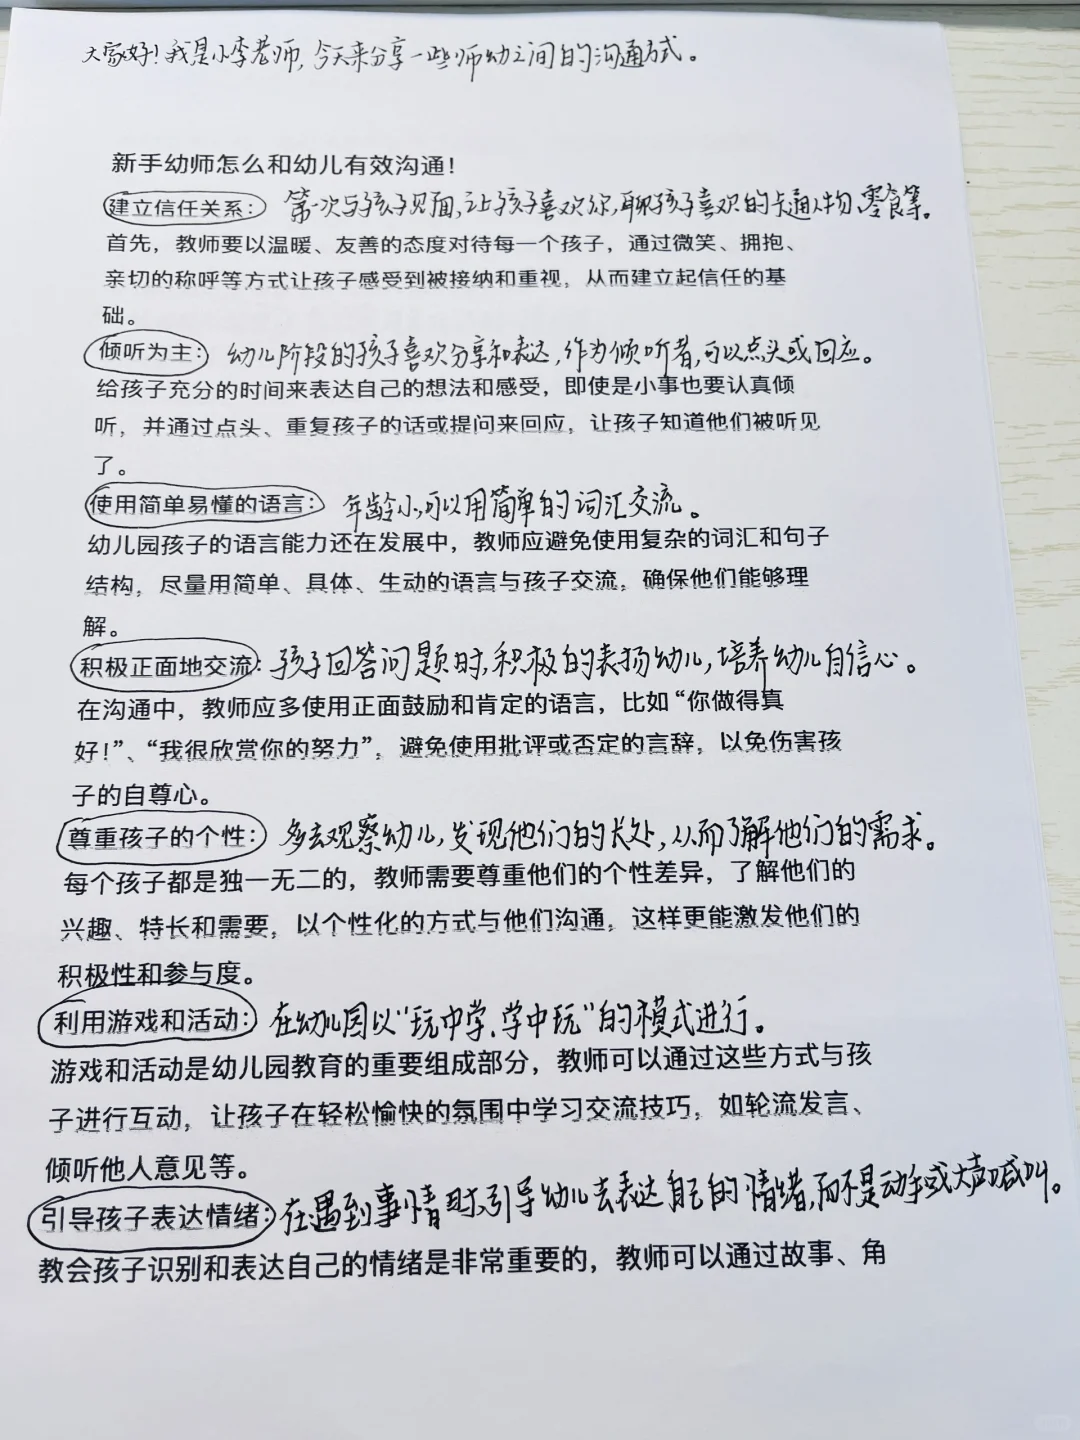 大家好！我是小李老师，今天来分享一些师幼之间的沟通方式。
新手幼师怎么和幼儿有效沟通！
建立信任关系： 第一次与孩子见面，让孩子喜欢你，聊孩子喜欢的卡通人物、零食等。
首先，教师要以温暖、友善的态度对待每一个孩子，通过微笑、拥抱、
亲切的称呼等方式让孩子感受到被接纳和重视，从而建立起信任的基
础。
倾听为主： 幼儿阶段的孩子喜欢分享和表达，作为倾听者，可以点头或回应。
给孩子充分的时间来表达自己的想法和感受，即使是小事也要认真倾
听，并通过点头、重复孩子的话或提问来回应，让孩子知道他们被听见
了。
使用简单易懂的语言： 年龄小，可以用简单的词汇交流。
幼儿园孩子的语言能力还在发展中，教师应避免使用复杂的词汇和句子
结构，尽量用简单、具体、生动的语言与孩子交流，确保他们能够理
解。
积极正面地交流： 孩子回答问题时，积极的表扬幼儿，培养幼儿自信心。
在沟通中，教师应多使用正面鼓励和肯定的语言，比如“你做得真
好！”、“我很欣赏你的努力”，避免使用批评或否定的言辞，以免伤害孩
子的自尊心。
尊重孩子的个性： 多去观察幼儿，发现他们的长处，从而了解他们的需求。
每个孩子都是独一无二的，教师需要尊重他们的个性差异，了解他们的
兴趣、特长和需要，以个性化的方式与他们沟通，这样更能激发他们的
积极性和参与度。
利用游戏和活动： 在幼儿园以“玩中学、学中玩”的模式进行。
游戏和活动是幼儿园教育的重要组成部分，教师可以通过这些方式与孩
子进行互动，让孩子在轻松愉快的氛围中学习交流技巧，如轮流发言、
倾听他人意见等。
引导孩子表达情绪： 在遇到事情时，引导幼儿去表达自己的情绪，而不是动手或大声喊叫。
教会孩子识别和表达自己的情绪是非常重要的，教师可以通过故事、角